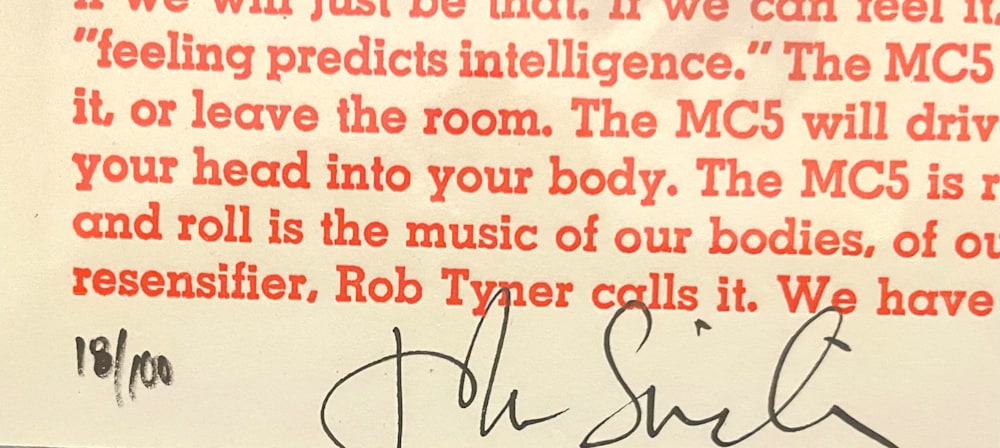 if we will just be that. If we can feel it
"feeling predicts intelligence." The MC5
it, or leave the room. The MC5 will driv
your head into your body. The MC5 is r
and roll is the music of our bodies, of ou
resensifier, Rob Tyner calls it. We have
18/100
John Sincla